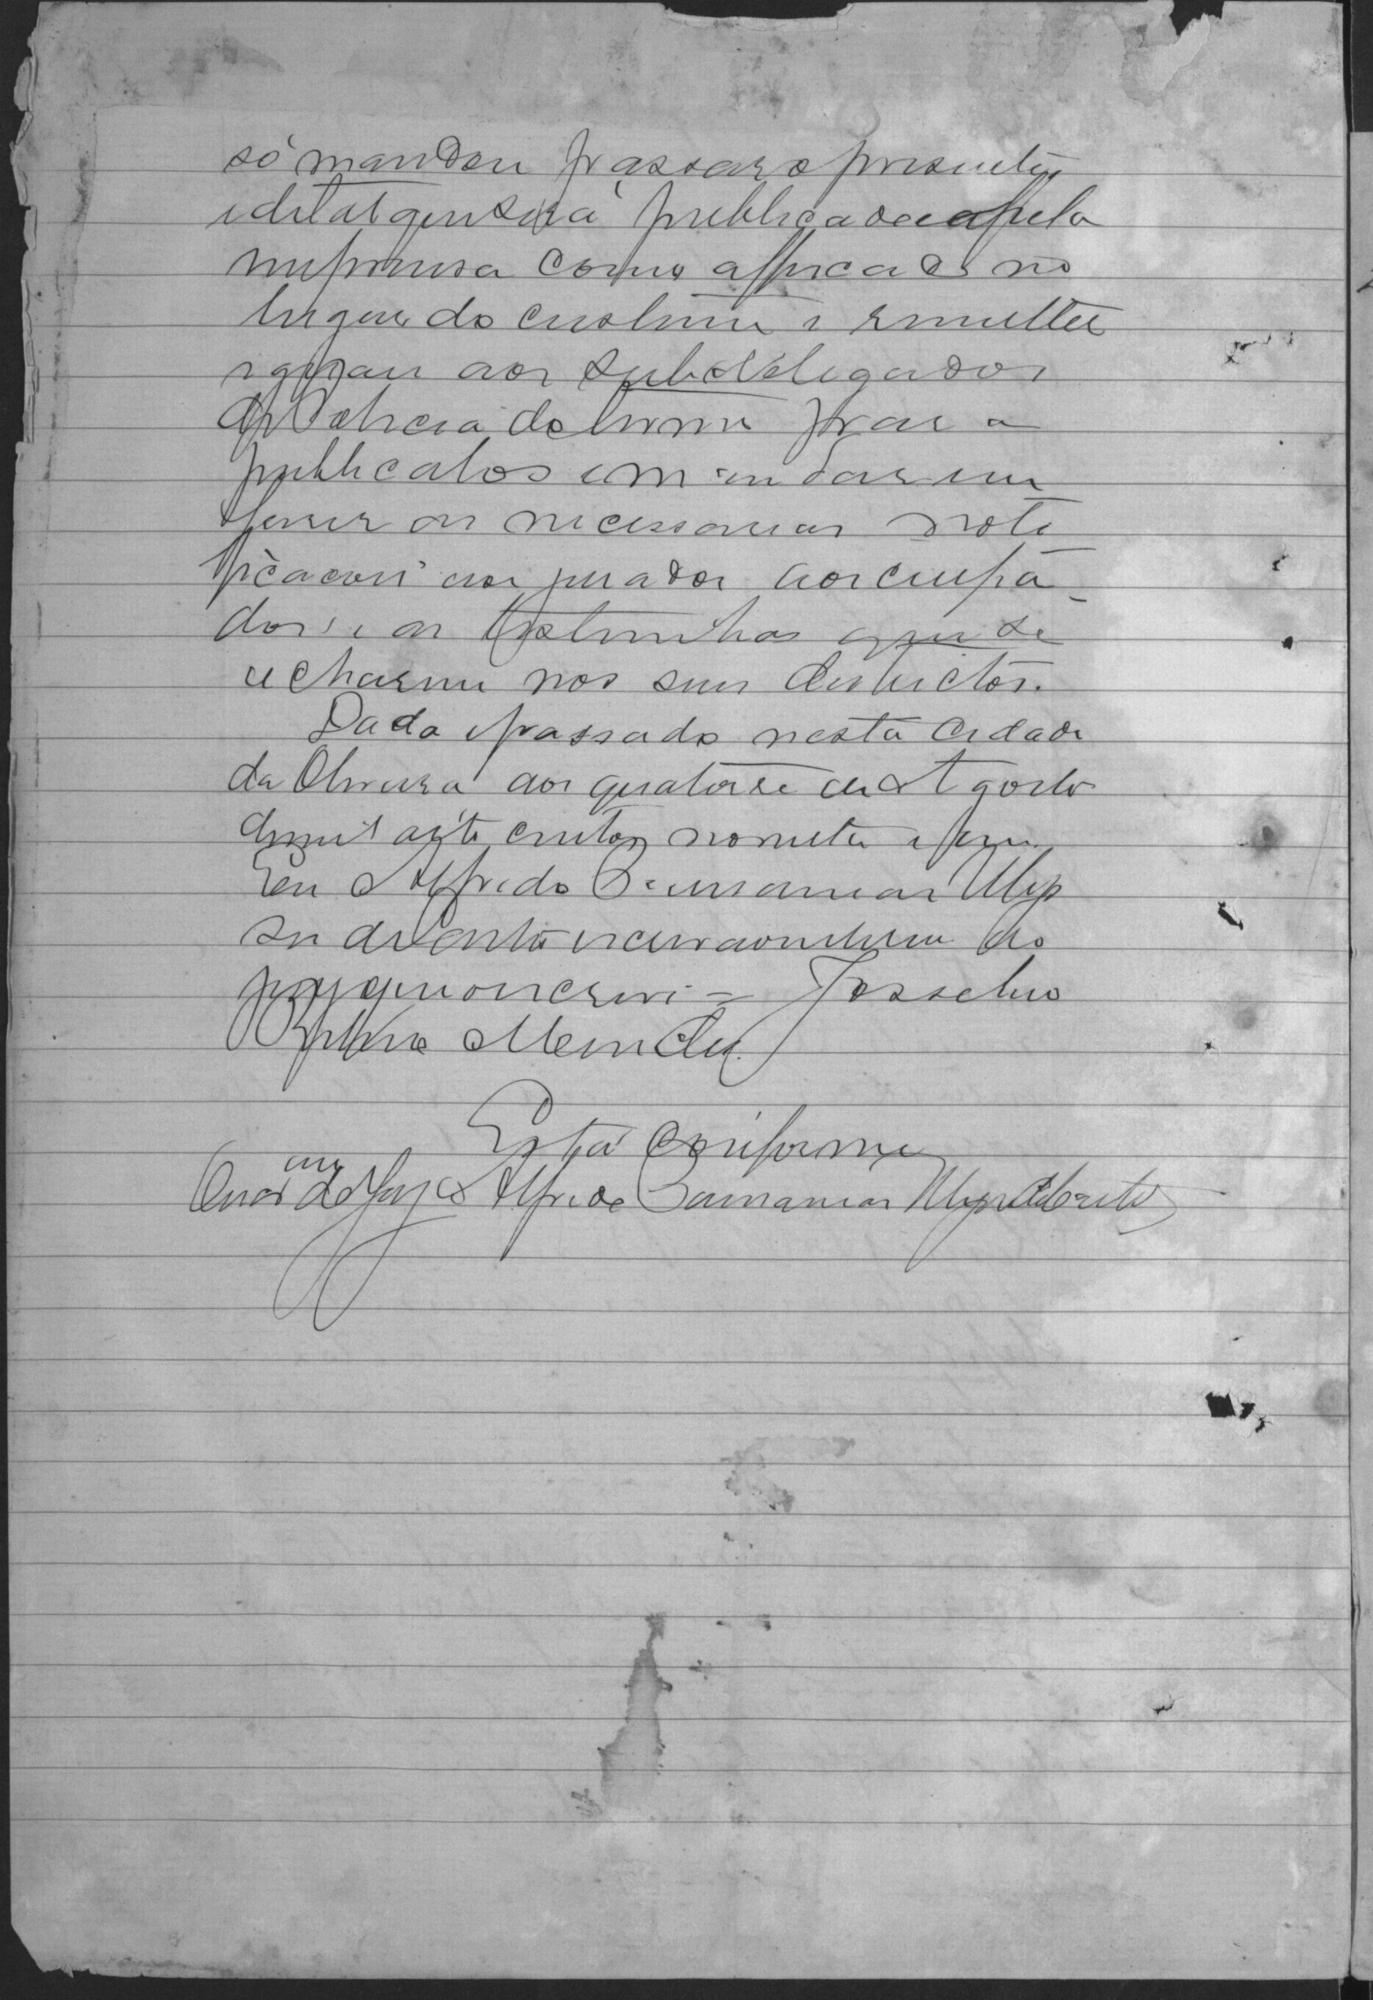 só mandou passar o presente
edital que será publicado pela
imprensa como afficado no
lugar do custume e remettee
egual aos subdelegados
de Policia do termo para a
publicalos e mandarem
fazer as necessarias noti
ficacoes aos jurados aos culpa-
dos e as testemunhas que se
acharem nos seus districtos.
Dado e passado nesta Cidade
da Oliveira aos quatorze de Agosto
de mil oito centos noventa e um.
Eu Alfredo
escrivão do
jury que o escrevi = Josselino
Mendes
Está Conforme
Alfredo